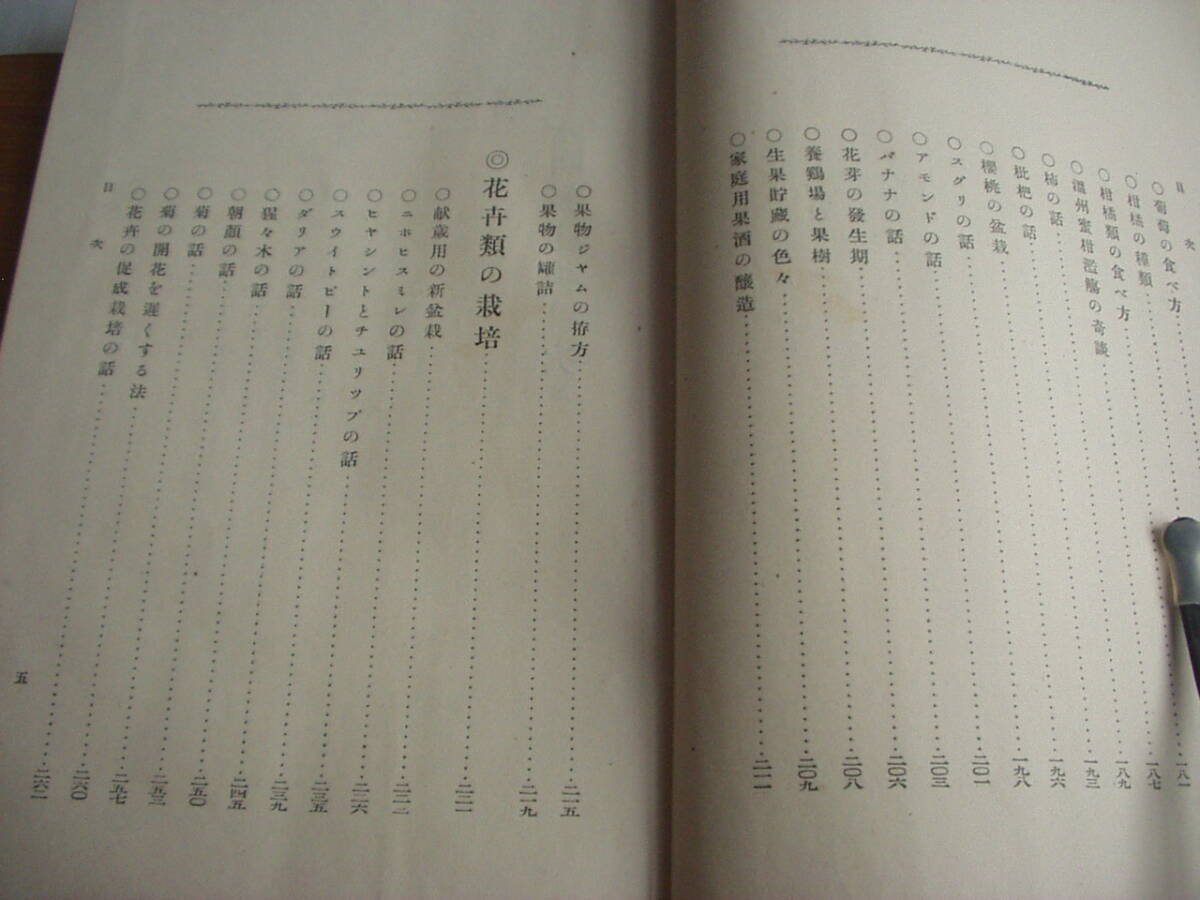 目次
○葡萄の食べ方
○柑橘の種類
○柑橘類の食べ方 一八一
○溫州蜜柑濫觴の奇談 一八七
○柿の話 一八九
○枇杷の話 一九三
○櫻桃の盆栽 一九六
○スグリの話 一九八
○アモンドの話 二〇一
○バナナの話 二〇三
○花芽の發生期 二〇六
○養鶏場と果樹 二〇八
○生果貯藏の色々 二〇九
○家庭用果酒の釀造 二一一
○果物ジヤムの拵方 二一五
○果物の罐詰 二一九
◎花卉類の栽培 二二一
○献歳用の新盆栽 二二二
○ニホヒスミレの話 二二六
○ヒヤシントとチユリツプの話 二三五
○スウイトピーの話 二三九
○ダリアの話 二四五
○猩々木の話 二五〇
○朝顏の話 二五三
○菊の話 二五七
○菊の開花を遲くする法 二六〇
○花卉の促成栽培の話 二六一
目次
五